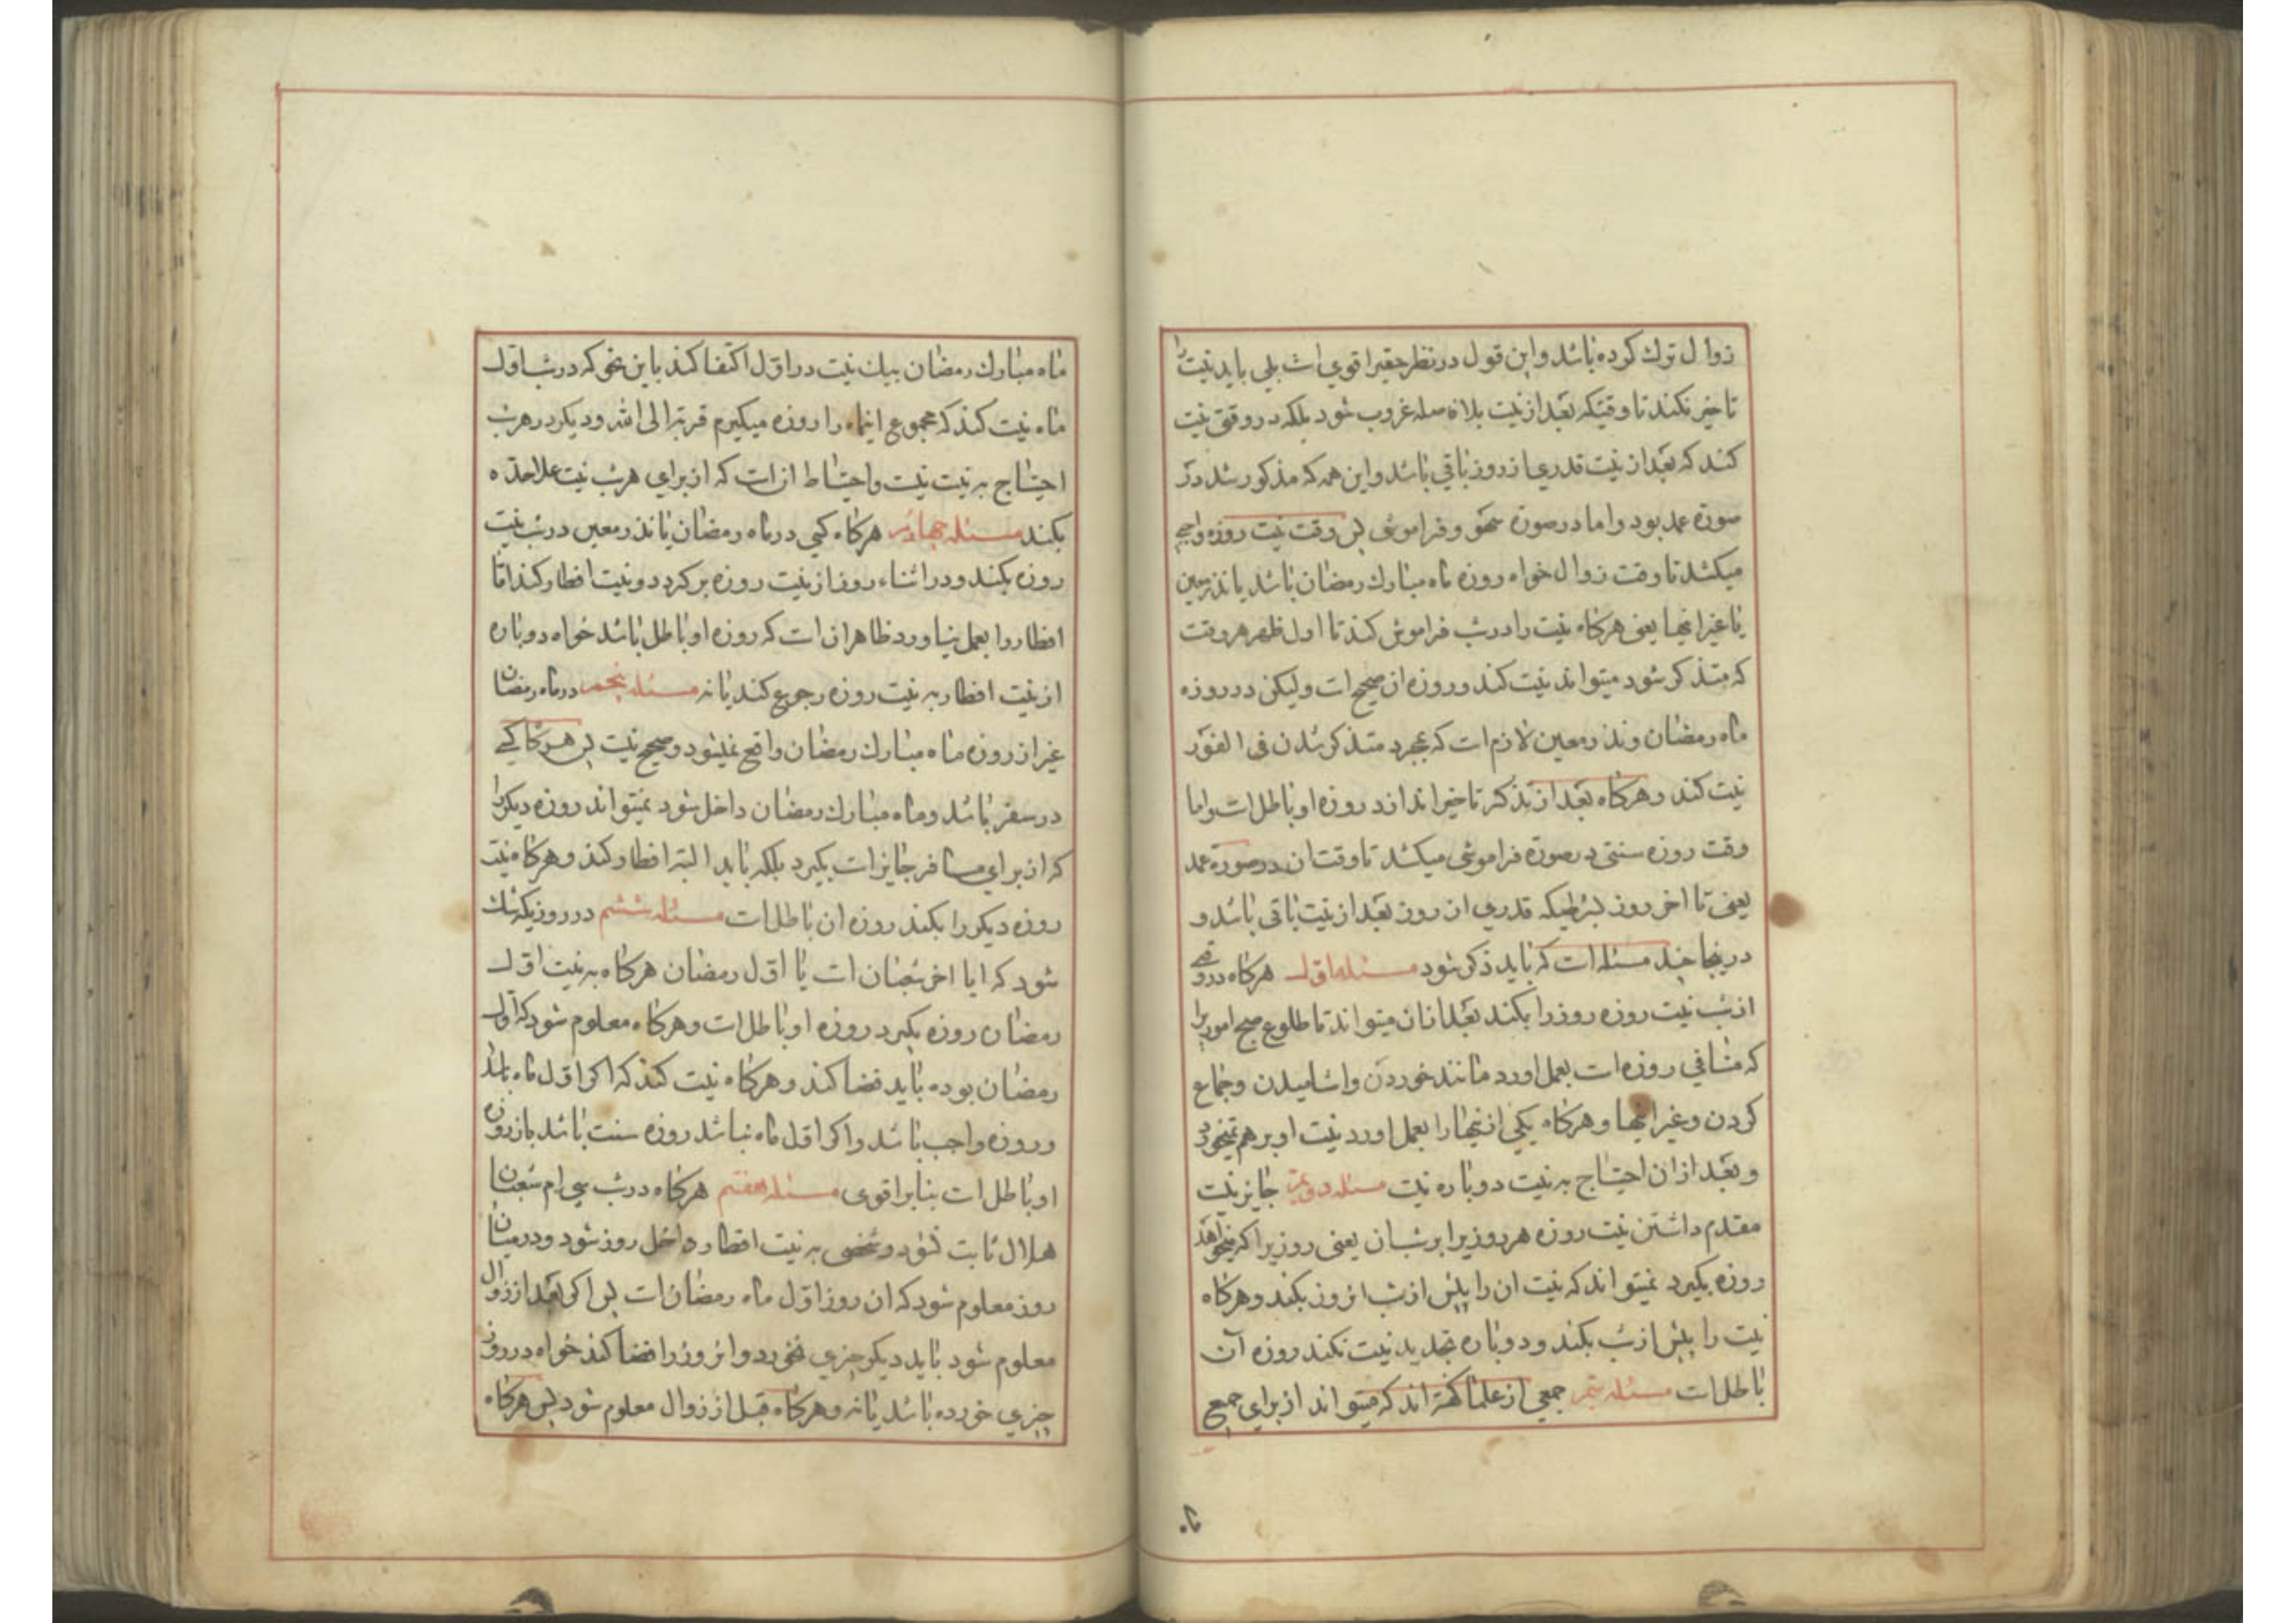 زوال ترك كرده باشد و اين قول در نظر حقير اقوي است بلي بايد نيت را
تاخير نكند تا وقتيكه بعد از نيت بلا فاصله غروب شود بلكه در وقتي نيت
كند كه بعد از نيت قدري از روز باقي باشد و اين همه كه مذكور شد در
صورة عمد بود و اما در صورة سهو و فراموشي پس وقت نيت روزه واجبي
ميكشد تا وقت زوال خواه روزه ماه مبارك رمضان باشد يا نذر معين
يا غير اينها يعني هركاه نيت را در شب فراموش كند تا اول ظهر هر وقت
كه متذكر شود ميتواند نيت كند و روزه ان صحيح است وليكن در روزه
ماه رمضان و نذر معين لازم است كه بمجرد متذكر شدن في الفور
نيت كند و هركاه بعد از تذكر تاخير اندازد روزه او باطل است و اما
وقت روزه سنتي در صورة فراموشي ميكشد تا وقت ان در صورة عمد
يعني تا اخر روز بشرطيكه قدري از روز بعد از نيت باقي باشد و
در ينجا چند مسئله است كه بايد ذكر شود مسئله اول هركاه در وقتي
از شب نيت روزه روز را بكند بعد از ان ميتواند تا طلوع صبح امور يرا
كه منافي روزه است بعمل اورد مانند خوردن و اشاميدن و جماع
كردن و غير اينها و هركاه يكي از اينها را بعمل اورد نيت او بر هم نميخورد
و بعد از ان احتياج به نيت دوباره نيت مسئله دويم جايز نيت
مقدم داشتن نيت روزه هر روزيرا بر شب ان يعني روزيرا كه ميخواهد
روزه بكيرد نميتواند كه نيت ان را پيش از شب انروز بكند و هركاه
نيت را پيش از شب بكند و دوباره تجديد نيت نكند روزه آن
باطل است مسئله سيم جمعي از علما كفته اند كه ميتواند از براي جميع
ماه مبارك رمضان بيك نيت در اول اكتفا كند باين نحو كه در شب اول
ماه نيت كند كه مجموع اينماه را روزه ميكيرم قربة الى الله و ديكر در هر شب
احتياج به نيت نيت و احتياط ان است كه از براي هر شب نيت علاحده
بكند مسئله چهارم هركاه كسي در ماه رمضان يا نذر معين در شب نيت
روزه بكند و در اثناء روز از نيت روزه بر كردد و نيت افطار كند اما
افطار را بعمل نياورد ظاهر ان است كه روزه او باطل باشد خواه دوباره
از نيت افطار به نيت روزه رجوع كند يا نه مسئله پنجم در ماه رمضان
غير از روزه ماه مبارك رمضان واقع نميشود و صحيح نيت پس هركاه كسي
در سفر باشد و ماه مبارك رمضان داخل شود نميتواند روزه ديكر را
كه از براي مسافر جايز است بكيرد بلكه بايد البته افطار كند و هركاه نيت
روزه ديكر را بكند روزه ان باطل است مسئله ششم در روزيكه شك
شود كه ايا اخر شعبان است يا اول رمضان هركاه به نيت اول
رمضان روزه بكيرد روزه او باطل است و هركاه معلوم شود كه اول
رمضان بوده بايد قضا كند و هركاه نيت كند كه اكر اول ماه باشد
و روزه واجب باشد و اكر اول ماه نباشد روزه سنت باشد باز روزه
او باطل است بنا بر اقوى مسئله هفتم هركاه در شب سي ام شعبان
هلال ثابت نشود و شخصي به نيت افطار داخل روز شود و در ميان
روز معلوم شود كه ان روز اول ماه رمضان است پس اكر بعد از زوال
معلوم شود بايد ديكر چيزي نخورد و انروز را قضا كند خواه در روز
چيزي خورده باشد يا نه و هركاه قبل از زوال معلوم شود پس هركاه